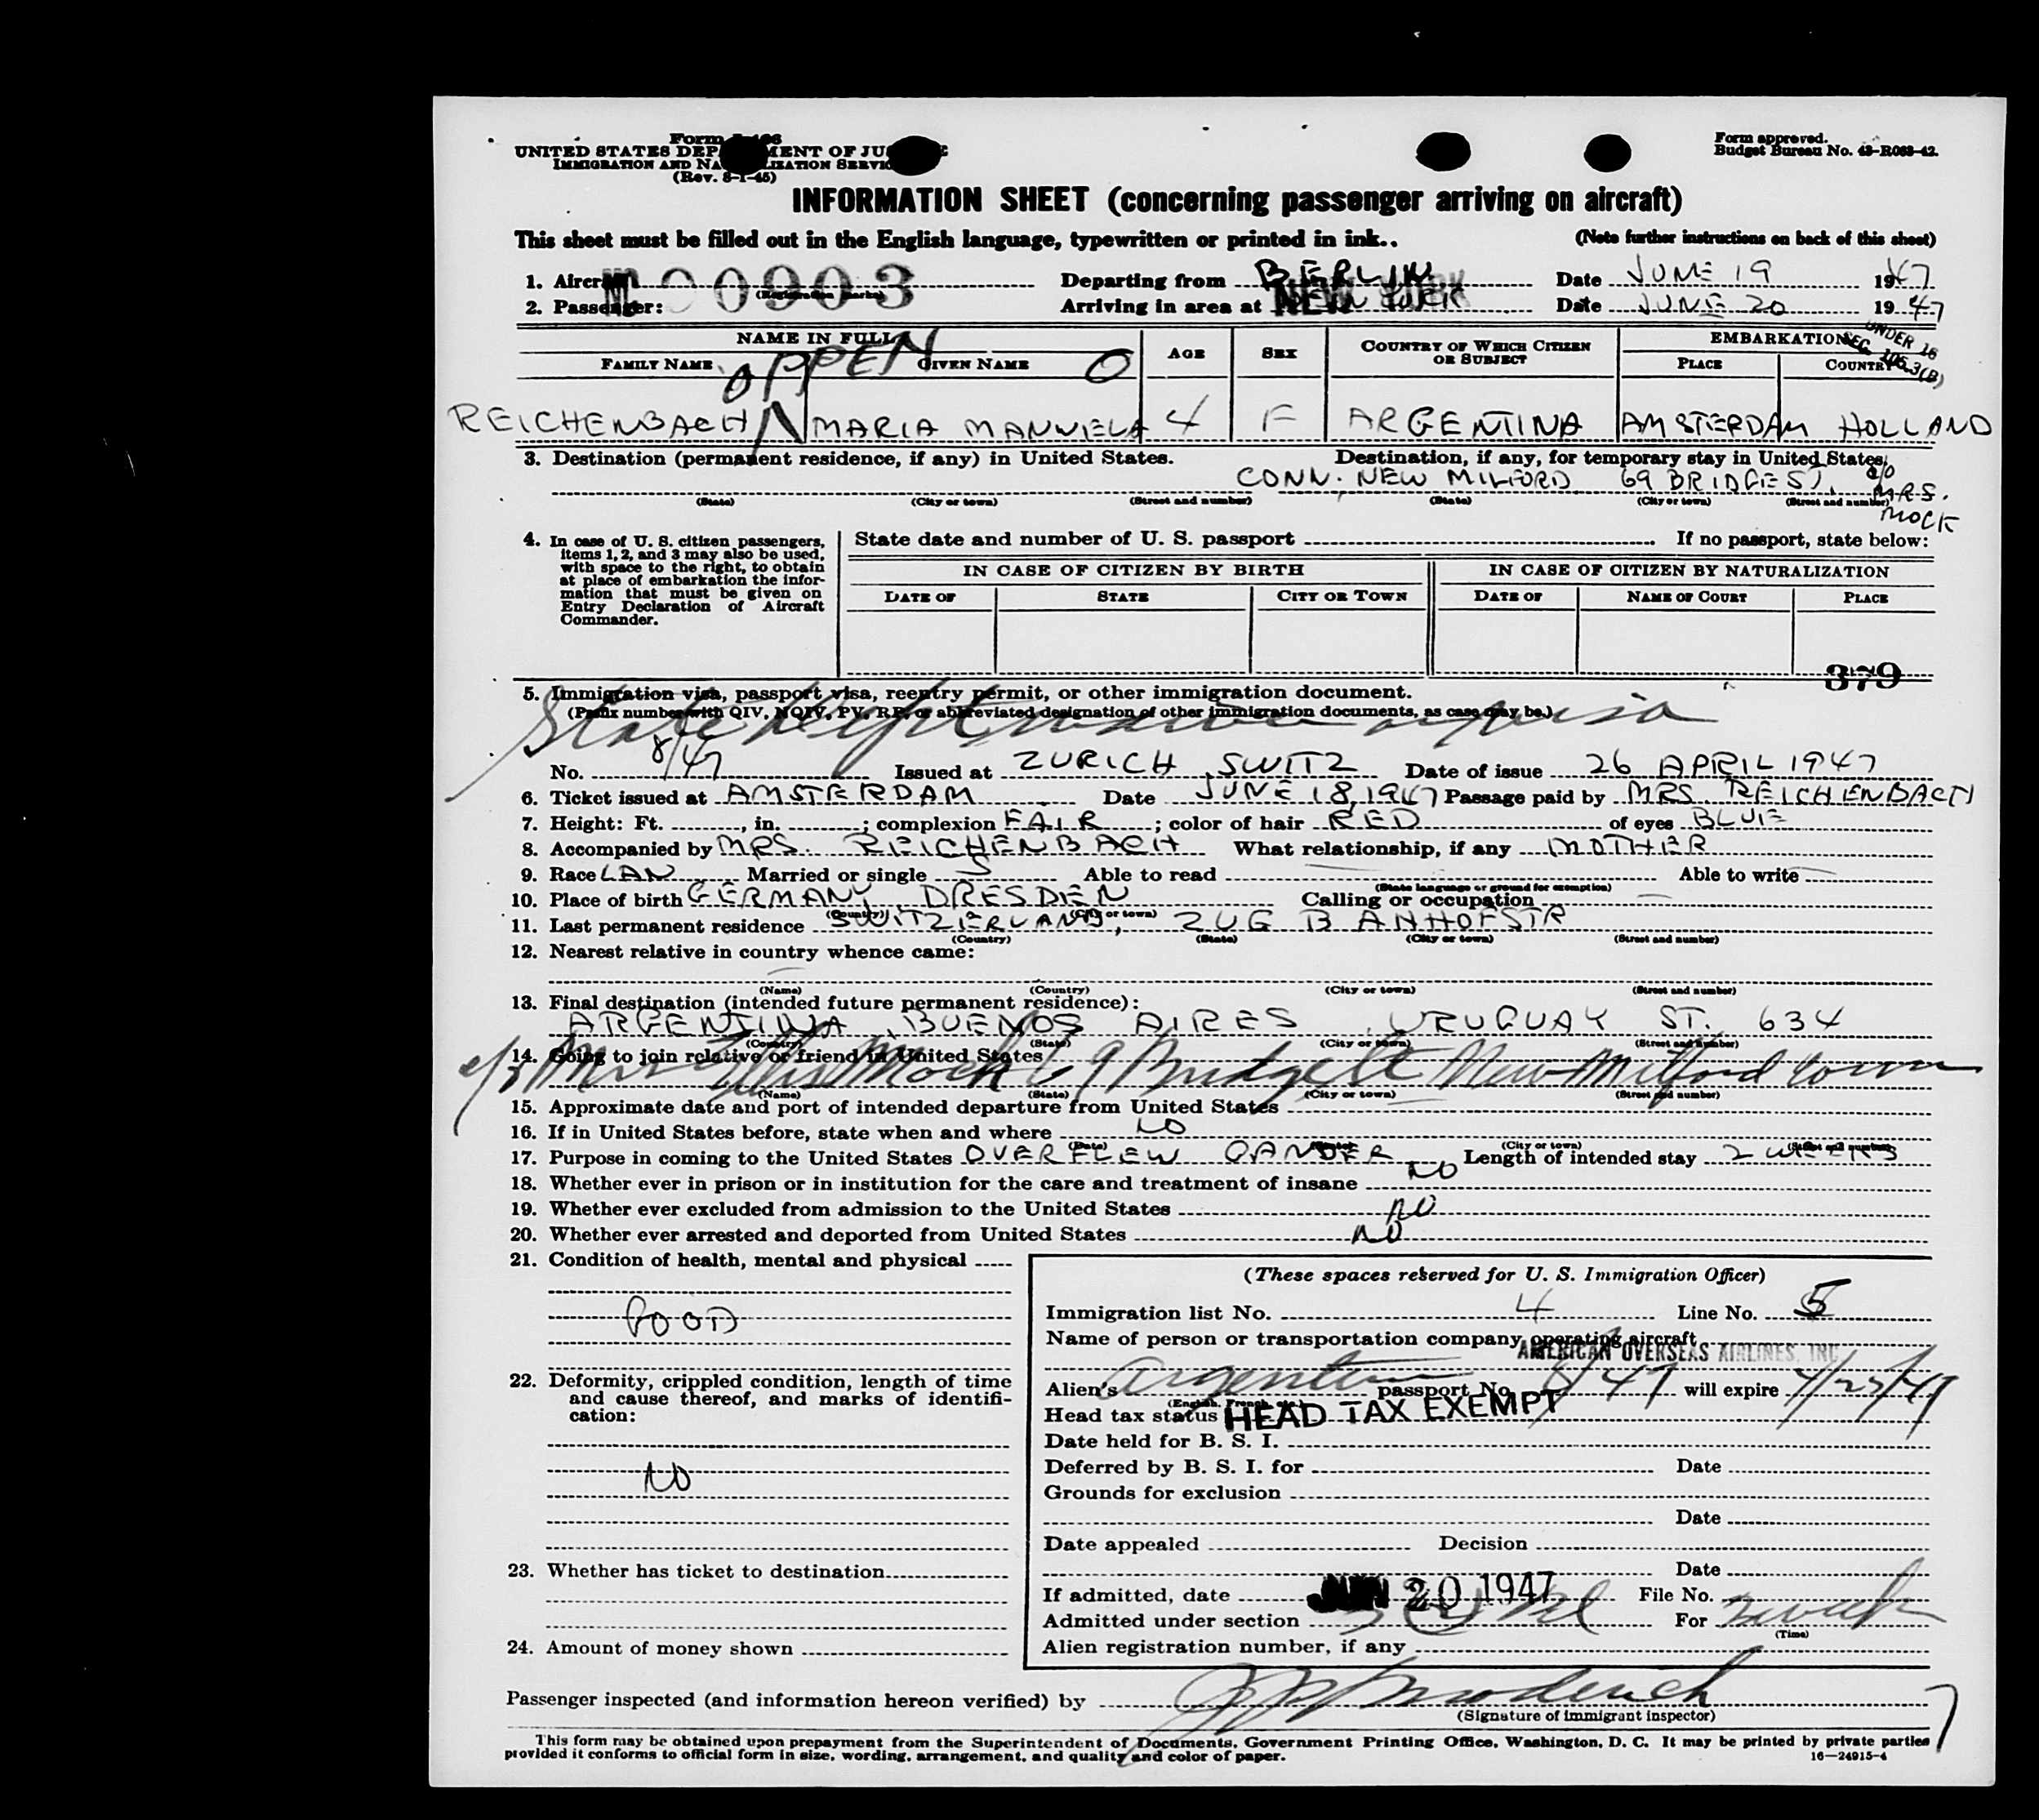 Form I-466
UNITED STATES DEPARTMENT OF JUSTICE
IMMIGRATION AND NATURALIZATION SERVICE
(Rev. 8-1-45)
Form approved.
Budget Bureau No. 43-R063-42.
INFORMATION SHEET (concerning passenger arriving on aircraft)
This sheet must be filled out in the English language, typewritten or printed in ink.. (Note further instructions on back of this sheet)
1. Aircraft 90903 (Registration marks) Departing from BERLIN Date JUNE 19 1947
2. Passenger: Arriving in area at NEW YORK Date JUNE 20 1947
NAME IN FULL AGE SEX COUNTRY OF WHICH CITIZEN OR SUBJECT EMBARKATION
FAMILY NAME GIVEN NAME PLACE COUNTRY
UNDER 16
SEC. 105.3(B)
OPPEN O
REICHENBACH MARIA MANUELA 4 F ARGENTINA AMSTERDAM HOLLAND
3. Destination (permanent residence, if any) in United States. Destination, if any, for temporary stay in United States,
CONN. NEW MILFORD 69 BRIDGE ST. c/o MRS. MOCK
(State) (City or town) (Street and number) (State) (City or town) (Street and number)
4. In case of U. S. citizen passengers, items 1, 2, and 3 may also be used, with space to the right, to obtain at place of embarkation the information that must be given on Entry Declaration of Aircraft Commander.
State date and number of U. S. passport If no passport, state below:
IN CASE OF CITIZEN BY BIRTH IN CASE OF CITIZEN BY NATURALIZATION
DATE OF STATE CITY OR TOWN DATE OF NAME OF COURT PLACE
379
5. Immigration visa, passport visa, reentry permit, or other immigration document.
(Prefix number with QIV, NQIV, PV, RP, or abbreviated designation of other immigration documents, as case may be.)
State Dept
No. 8/47 Issued at ZURICH, SWITZ Date of issue 26 APRIL 1947
6. Ticket issued at AMSTERDAM Date JUNE 18, 1947 Passage paid by MRS REICHENBACH
7. Height: Ft. , in. ; complexion FAIR ; color of hair RED of eyes BLUE
8. Accompanied by MRS. REICHENBACH What relationship, if any MOTHER
9. Race LAN Married or single S Able to read Able to write
(State language or ground for exemption)
10. Place of birth GERMANY, DRESDEN Calling or occupation
(Country) (City or town)
11. Last permanent residence SWITZERLAND, ZUG BANHOFSTR
(Country) (State) (City or town) (Street and number)
12. Nearest relative in country whence came:
(Name) (Country) (City or town) (Street and number)
13. Final destination (intended future permanent residence):
ARGENTINA, BUENOS AIRES, URUGUAY ST. 634
(Country) (State) (City or town) (Street and number)
14. Going to join relative or friend in United States
c/o Mrs Mock 69 Bridge St New Milford Conn
(Name) (State) (City or town) (Street and number)
15. Approximate date and port of intended departure from United States
16. If in United States before, state when and where NO
(Date) (City or town) (Street and number)
17. Purpose in coming to the United States OVERFLEW GANDER Length of intended stay 2 WEEKS
18. Whether ever in prison or in institution for the care and treatment of insane NO
19. Whether ever excluded from admission to the United States NO
20. Whether ever arrested and deported from United States NO
21. Condition of health, mental and physical
GOOD
22. Deformity, crippled condition, length of time and cause thereof, and marks of identification:
NO
23. Whether has ticket to destination
24. Amount of money shown
(These spaces reserved for U. S. Immigration Officer)
Immigration list No. 4 Line No. 5
Name of person or transportation company operating aircraft
AMERICAN OVERSEAS AIRLINES, INC
Alien's Argentine passport No. 8/47 will expire
(English, French, etc.)
Head tax status HEAD TAX EXEMPT
Date held for B. S. I.
Deferred by B. S. I. for Date
Grounds for exclusion
Date
Date appealed Decision
Date
If admitted, date JUN 20 1947 File No.
Admitted under section For 2 weeks
(Time)
Alien registration number, if any
Passenger inspected (and information hereon verified) by
(Signature of immigrant inspector)
This form may be obtained upon prepayment from the Superintendent of Documents, Government Printing Office, Washington, D. C. It may be printed by private parties
provided it conforms to official form in size, wording, arrangement, and quality and color of paper. 16—24915-4